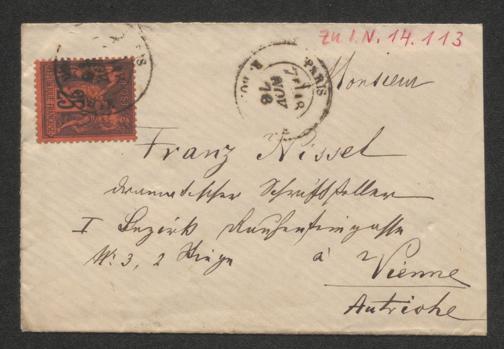 Zu I.N. 14.113
PARIS
Monsieur
Franz Nissel
dramatischer Schriftsteller
I Bezirk Rauhensteingasse
No. 3, 2 Stiege à Vienne
Autriche
25
NOV